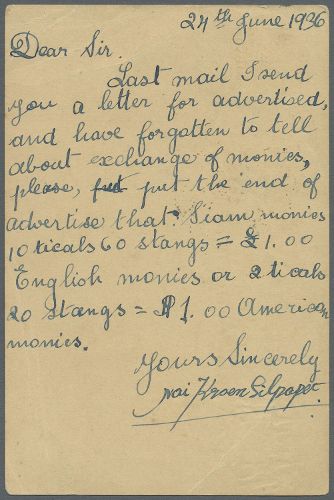 24th June 1936
Dear Sir.
Last mail I send
you a letter for advertised,
and have forgotten to tell
about exchange of monies,
please, put the end of
advertise that: Siam monies
10 ticals 60 stangs = £1.00
English monies or 2 ticals
20 stangs = $1.00 American
monies.
Yours Sincerely
Nai